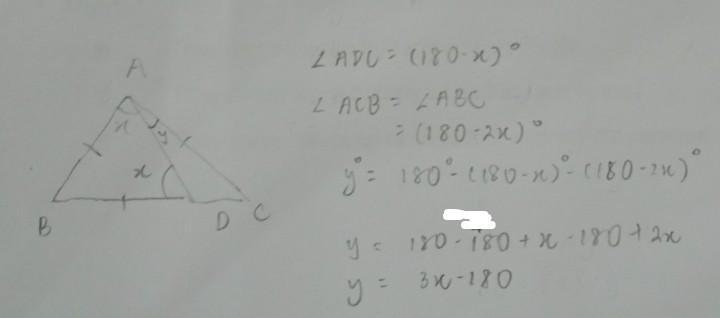 A
x
y
x
B
D
C
∠ADC = (180-x)°
∠ACB = ∠ABC
= (180-2x)°
y° = 180° - (180-x)° - (180-2x)°
y = 180 - 180 + x - 180 + 2x
y = 3x - 180